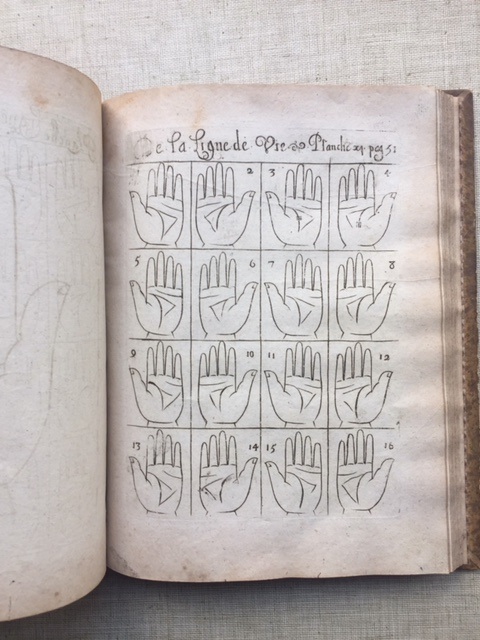 De La Ligne de Vie Planche pag 51
1 2 3 4
5 6 7 8
9 10 11 12
13 14 15 16